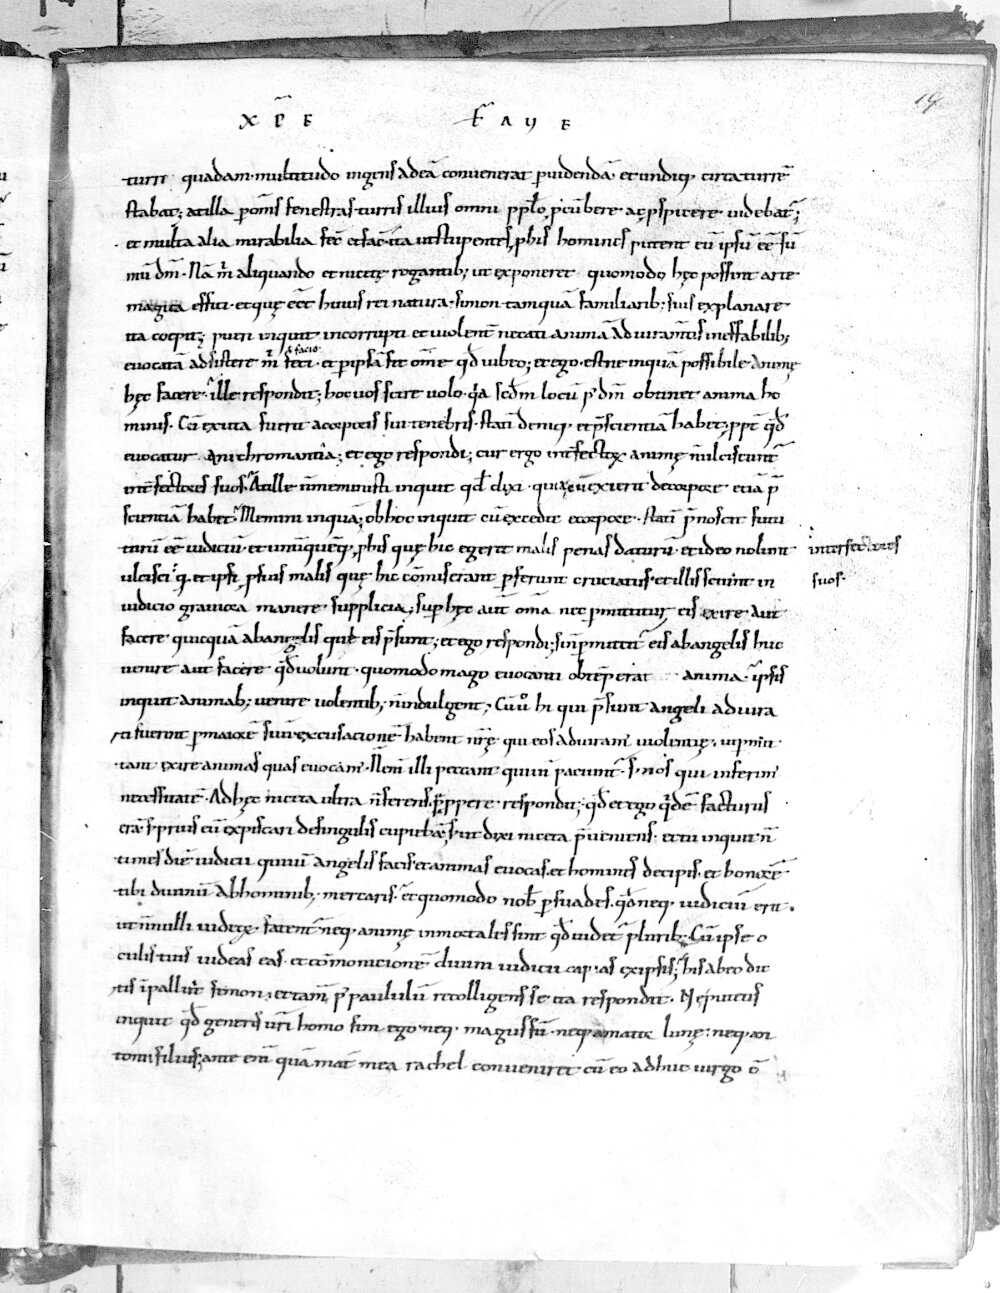 19
XP̄E F̄AVE
turri quadam · multitudo ingens ad eā convenerat p videndā · et undiq; circa turrē
stabat; at illa p om̄s fenestras turris illius omni pp̄lo p̄cūbere ac pspicere videbat̄;
et multa alia mirabilia fec̄ et fac̄ · ita ut stupentes p his homines putent eū ipsū eē sū
mū dm̄ · Nā m̄ aliquando et nicetę rogantib; ut exponeret quomodo hęc possint arte
magica effici · et quę eēt huius rei natura · simon tamquā familiarib; suis explanare
ita coepit; pueri inquit incorrupti et violent̄ necati animā adiuram̄tis ineffabilib;
evocatā adsistere m̄ feci · et p ipsā fit om̄e qd̄ iubeo; et ego · est ne inquā possibile · animę
& facio
hęc facere · ille respondit; hoc vos scire volo · q̄a scd̄m locū p̄ dm̄ obtinet anima ho
minis · Cū exuta fuerit a corporis sui tenebris · statī deniq; et p̄scientiā habet; ppt̄ qd̄
evocatur nichromantia; et ego respondi; cur ergo int̄fectorū animę n̄ ulciscunt̄
int̄fectores suos · At ille n̄ meministi inquit qd̄ dixi · quia cū exierit de corpore · etiā p̄
scientiā habet · Memini inquā; ob hoc inquit cū excedit e corpore · statī p̄noscit futu
turū eē iudiciū · et unūquēq; p his quę hic egerit malis penas daturū · et ideo nolunt
interfectores
ulcisci · q̄ · et ipsi p suis malis quę hic com̄iserant p̄ferunt cruciatus · et illis sciunt in
suos ·
iudicio graviora manere supplicia; sup hęc aut̄ om̄ia nec p̄mittuntur eis exire · aut
facere quicquā ab angelis qui eis p̄sunt; et ego respondi; si n̄ p̄mittit̄ eis ab angelis huc
venire aut facere qd̄ volunt · quomodo mago evocanti obtēperat anima · ipsis
inquit animab; venire volentib; n̄ indulgent; Cū v̊ hi qui p̄sunt angeli adiura
ti fuerint p maiorē suū · excusationē habent nr̄ę qui eos adiuram̄ violentię · ut p̄mit
tant exire animas quas evocam̄ · Nō enī illi peccant qui vim̄ paciunt̄ · s; nos qui inferim̄
necessitatē · Ad hęc niceta ultra n̄ ferens · p̄ppere respondit; qd̄ et ego q̄dē facturus
erā · s; prius eū expiscari de singulis cupiebā · s; ut dixi niceta p̄veniens · et tu inquit n̄
times diē iudicii qui vim̄ angelis facis · et animas evocas · et homines decipis · et honorē
tibi divinū ab hominib; mercaris · et quomodo nob̄ p̄suades · qd̄ neq; iudiciū erit ·
ut n̄nulli iudęorū fatent̄ neq; animę inmortales sint qd̄ videt̄ plurib; Cū ipse o
culis tuis videas eas · et com̄onitionē divini iudicii capias ex ipsis; his ab eo dic
tis īpalluit simon · et tam̄ p̄ paululū recolligens se ita respondit · Ne putetis
inquit qd̄ generis vr̄i homo sim ego neq; magus sū · neq; amator lunę · neq; an
tonii filius; ante enī quā mat̄ mea rachel conveniret cū eo adhuc virgo c̄